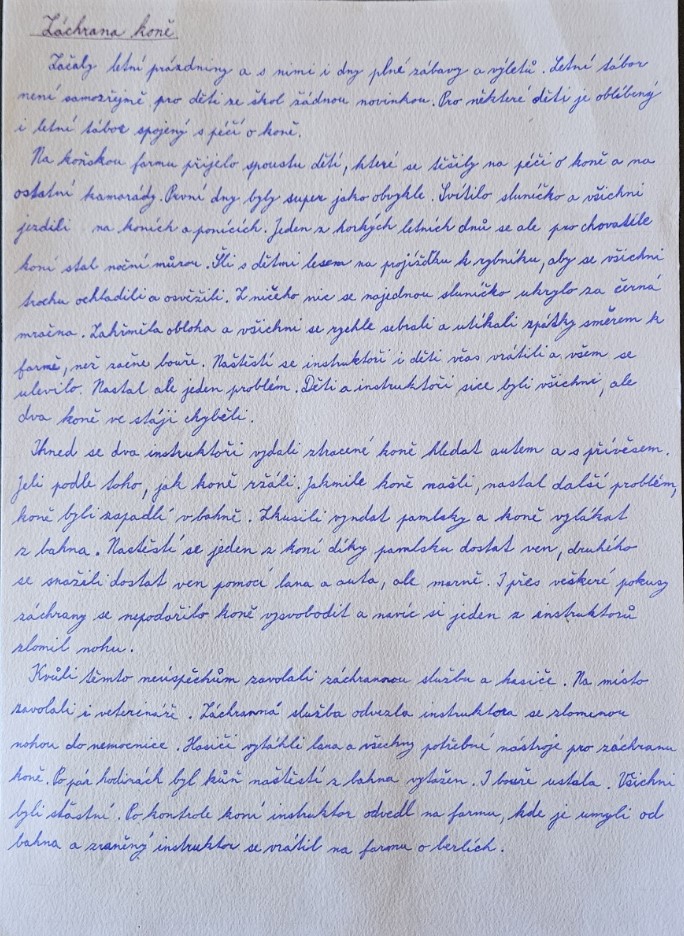 Záchrana koně
Začaly letní prázdniny a s nimi i dny plné zábavy a výletů. Letní tábor
není samozřejmě pro děti ze škol žádnou novinkou. Pro některé děti je oblíbený
i letní tábor spojený s péčí o koně.
Na koňskou farmu přijelo spoustu dětí, které se těšily na péči o koně a na
ostatní kamarády. První dny byly super jako obvykle. Svítilo sluníčko a všichni
jezdili na koních a ponících. Jeden z horkých letních dnů se ale pro chovatele
koní stal noční můrou. Šli s dětmi lesem na projížďku k rybníku, aby se všichni
trochu ochladili a osvěžili. Z ničeho nic se najednou sluníčko ukrylo za černá
mračna. Zahřměla obloha a všichni se rychle sebrali a utíkali zpátky směrem k
farmě, než začne bouře. Naštěstí se instruktoři i děti včas vrátili a všem se
ulevilo. Nastal ale jeden problém. Děti a instruktoři sice byli všichni, ale
dva koně ve stáji chyběli.
Ihned se dva instruktoři vydali ztracené koně hledat autem a s přívěsem.
Jeli podle toho, jak koně ržáli. Jakmile koně našli, nastal další problém,
koně byli zapadlí v bahně. Zkusili vyndat pamlsky a koně vylákat
z bahna. Naštěstí se jeden z koní díky pamlsku dostat ven, druhého
se snažili dostat ven pomocí lana a auta, ale marně. I přes veškeré pokusy
záchrany se nepodařilo koně vysvobodit a navíc si jeden z instruktorů
zlomil nohu.
Kvůli těmto neúspěchům zavolali záchrannou službu a hasiče. Na místo
zavolali i veterináře. Záchranná služba odvezla instruktora se zlomenou
nohou do nemocnice. Hasiči vytáhli lana a všechny potřebné nástroje pro záchranu
koně. Po pár hodinách byl kůň naštěstí z bahna vytažen. I bouře ustala. Všichni
byli šťastní. Po kontrole koní instruktor odvedl na farmu, kde je umyli od
bahna a zraněný instruktor se vrátil na farmu o berlích.